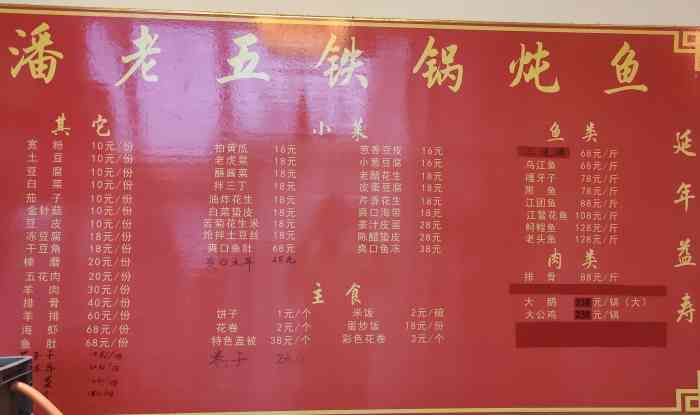 潘老五铁锅炖鱼
延年益寿
其它
宽粉 10元/份
土豆 10元/份
豆腐 10元/份
白菜 10元/份
茄子 10元/份
金针菇 10元/份
豆皮 10元/份
冻豆腐 18元/份
干豆角 18元/份
榛磨 20元/份
五花肉 20元/份
羊肉 30元/份
排骨 40元/份
羊排 60元/份
海虾 68元/份
鱼肚 68元/份
小菜
拍黄瓜 16元
老虎菜 18元
酥酱菜 18元
拌三丁 18元
油炸花生 18元
白菜蛰皮 18元
苦菊花生米 18元
炝拌土豆丝 18元
爽口鱼肚 68元
葱香豆皮 16元
小葱豆腐 16元
老醋花生 18元
皮蛋豆腐 18元
芹香花生 18元
爽口海带 18元
姜汁皮蛋 28元
陈醋蛰皮 28元
爽口鱼冻 38元
主食
饼子 1元/个
花卷 2元/个
特色盖被 38元/个
米饭 2元/碗
蛋炒饭 18元/份
彩色花卷 3元/个
卷子
鱼类
68元/斤
乌江鱼 66元/斤
嘎牙子 78元/斤
黑鱼 78元/斤
江团鱼 88元/斤
江鳘花鱼 108元/斤
鲟鳇鱼 128元/斤
老头鱼 128元/斤
肉类
排骨 88元/斤
大鹅 元/锅（大）
大公鸡 元/锅